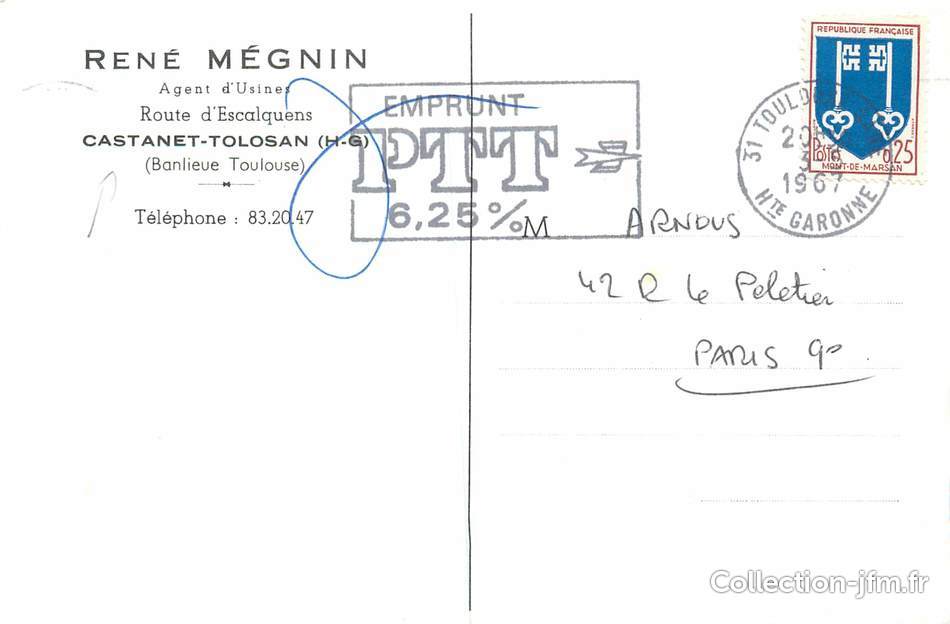 RENÉ MÉGNIN
Agent d'Usines
Route d'Escalquens
CASTANET-TOLOSAN (H-G)
(Banlieue Toulouse)
Téléphone : 83.20.47
EMPRUNT
PTT
6,25%
31 TOULOUSE
20H
1967
HTE GARONNE
REPUBLIQUE FRANÇAISE
POSTES 0,25
MONT-DE-MARSAN
M ARNOUS
42 R Le Peletier
PARIS 9°
Collection-jfm.fr